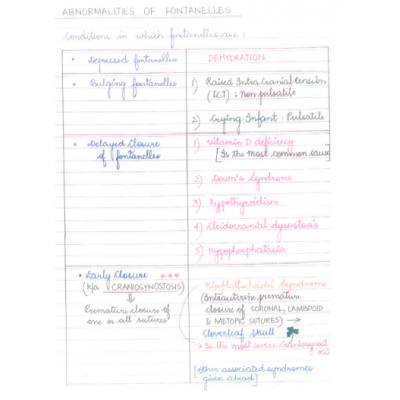 ABNORMALITIES OF FONTANELLES
Conditions in which fontanelles are :
• Depressed fontanelles
DEHYDRATION
• Bulging fontanelles
1) Raised Intra Cranial tension
(ICT) : Non pulsatile
2) Crying Infant : Pulsatile
• Delayed Closure
of fontanelles
1) Vitamin D deficiency
[Is the most common cause
2) Down's Syndrome
3) Hypothyroidism
4) Cleidocranial dysostosis
5) Hypophosphatasia
• Early Closure
(k/a CRANIOSYNOSTOSIS)
&
Premature closure of
one or all sutures
Kleeblattschadel Syndrome
(Intrauterine premature
closure of CORONAL, LAMBDOID
& METOPIC SUTURES) →
Cloverleaf Skull
→ Is the most severe
[Other associated syndromes
given ahead]